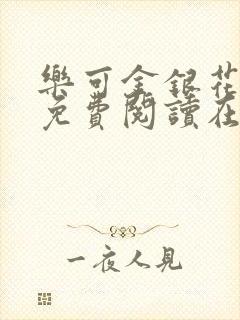 樂可金銀花
免費閱讀在
一夜人見